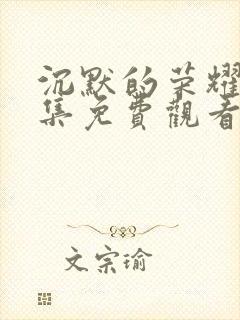 沉默的荣耀
集免費觀看
文宗瑜